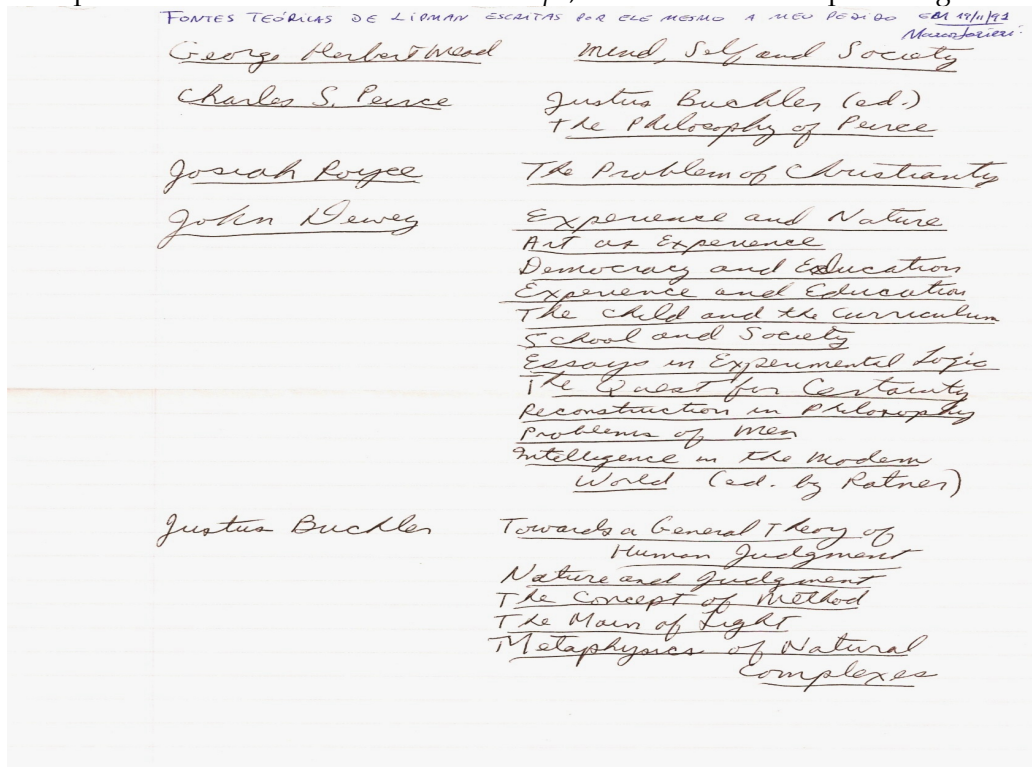 FONTES TEÓRICAS DE LIPMAN ESCRITAS POR ELE MESMO A MEU PEDIDO EM 19/11/91
George Herbert Mead Mind, Self, and Society
Charles S. Peirce Justus Buchler (ed.)
The Philosophy of Peirce
Josiah Royce The Problem of Christianity
John Dewey Experience and Nature
Art as Experience
Democracy and Education
Experience and Education
The Child and the Curriculum
School and Society
Essays in Experimental Logic
The Quest for Certainty
Reconstruction in Philosophy
Problems of Men
Intelligence in the Modern
World (ed. by Ratner)
Justus Buchler Towards a General Theory of
Human Judgment
Nature and Judgment
The Concept of Method
The Main of Light
Metaphysics of Natural
Complexes